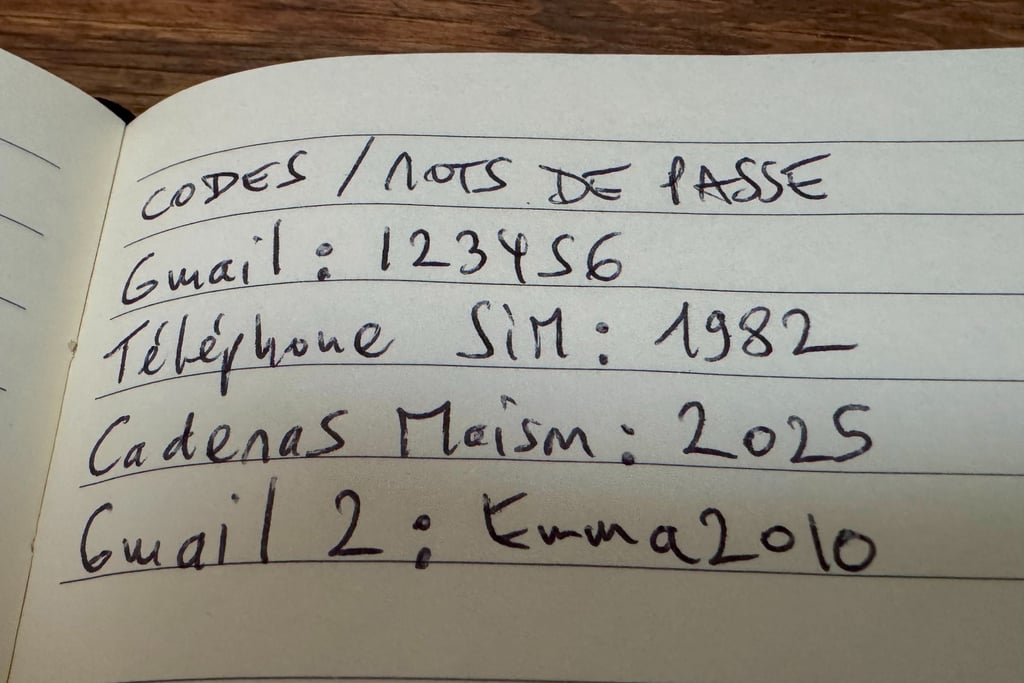 CODES / MOTS DE PASSE
Gmail : 123456
Téléphone SiM : 1982
Cadenas Maison : 2025
Gmail 2 : Emma2010